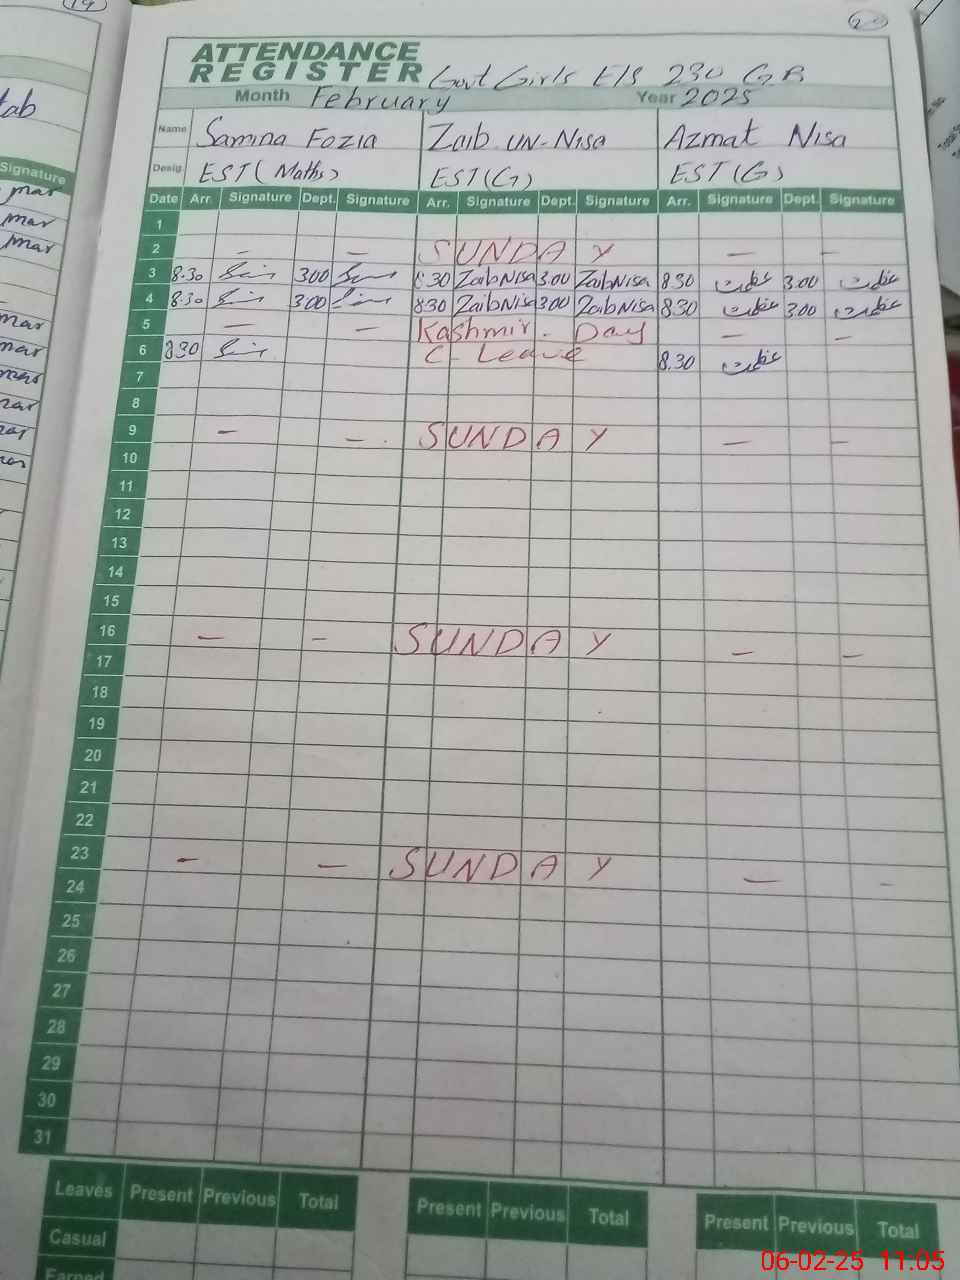 19
20
tab
Signature
mar
mar
mar
mar
mar
mar
mar
mar
mar
ATTENDANCE
REGISTER Govt Girls E/S 230 G.B
Month February Year 2025
Name Samina Fozia Zaib un-Nisa Azmat Nisa
Desig. EST (Maths) EST (G) EST (G)
Date Arr. Signature Dept. Signature Arr. Signature Dept. Signature Arr. Signature Dept. Signature
1
2 — — SUNDAY — —
3 8.30 300 8.30 ZaibNisa 3.00 ZaibNisa 8.30 عظمت 3.00 عظمت
4 8.30 300 8.30 ZaibNisa 3.00 ZaibNisa 8.30 عظمت 3.00 عظمت
5 — — Kashmir - Day — —
6 8.30 C- Leave 8.30 عظمت
7
8
9 — — SUNDAY — —
10
11
12
13
14
15
16 — — SUNDAY — —
17
18
19
20
21
22
23 — — SUNDAY — -
24
25
26
27
28
29
30
31
Leaves Present Previous Total Present Previous Total Present Previous Total
Casual
Earned
06-02-25 11.05